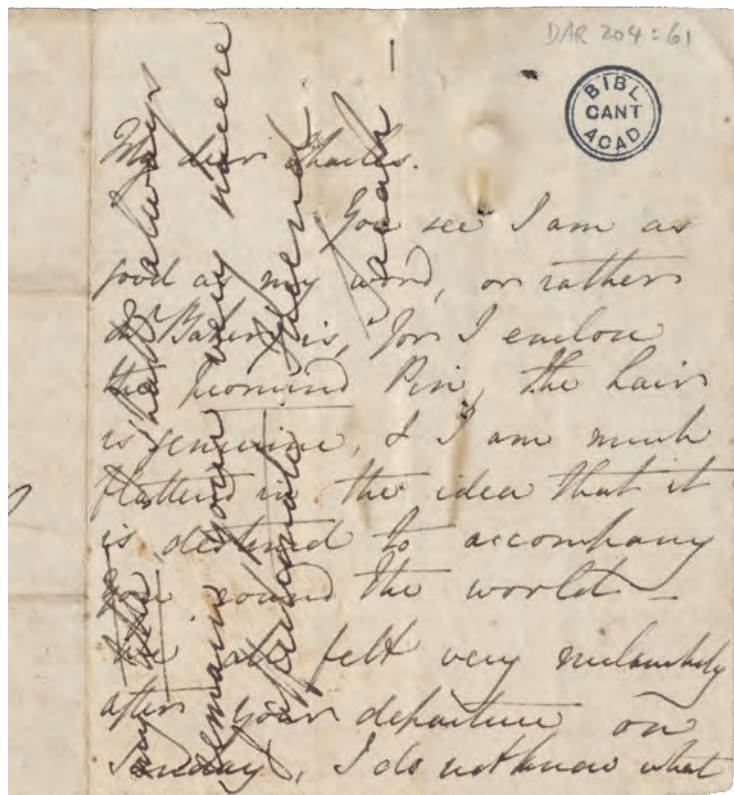 DAR 204:61
BIBL
CANT
ACAD
My dear Charles.
You see I am as
good as my word, or rather
Baker is, for I enclose
the promised Pin, the hair
is genuine, & I am much
flattered in the idea that it
is destined to accompany
you round the world —
We all felt very melancholy
after your departure on
Sunday, I do not know what
shall always
remain your very sincere
& affectionate friend
Sarah